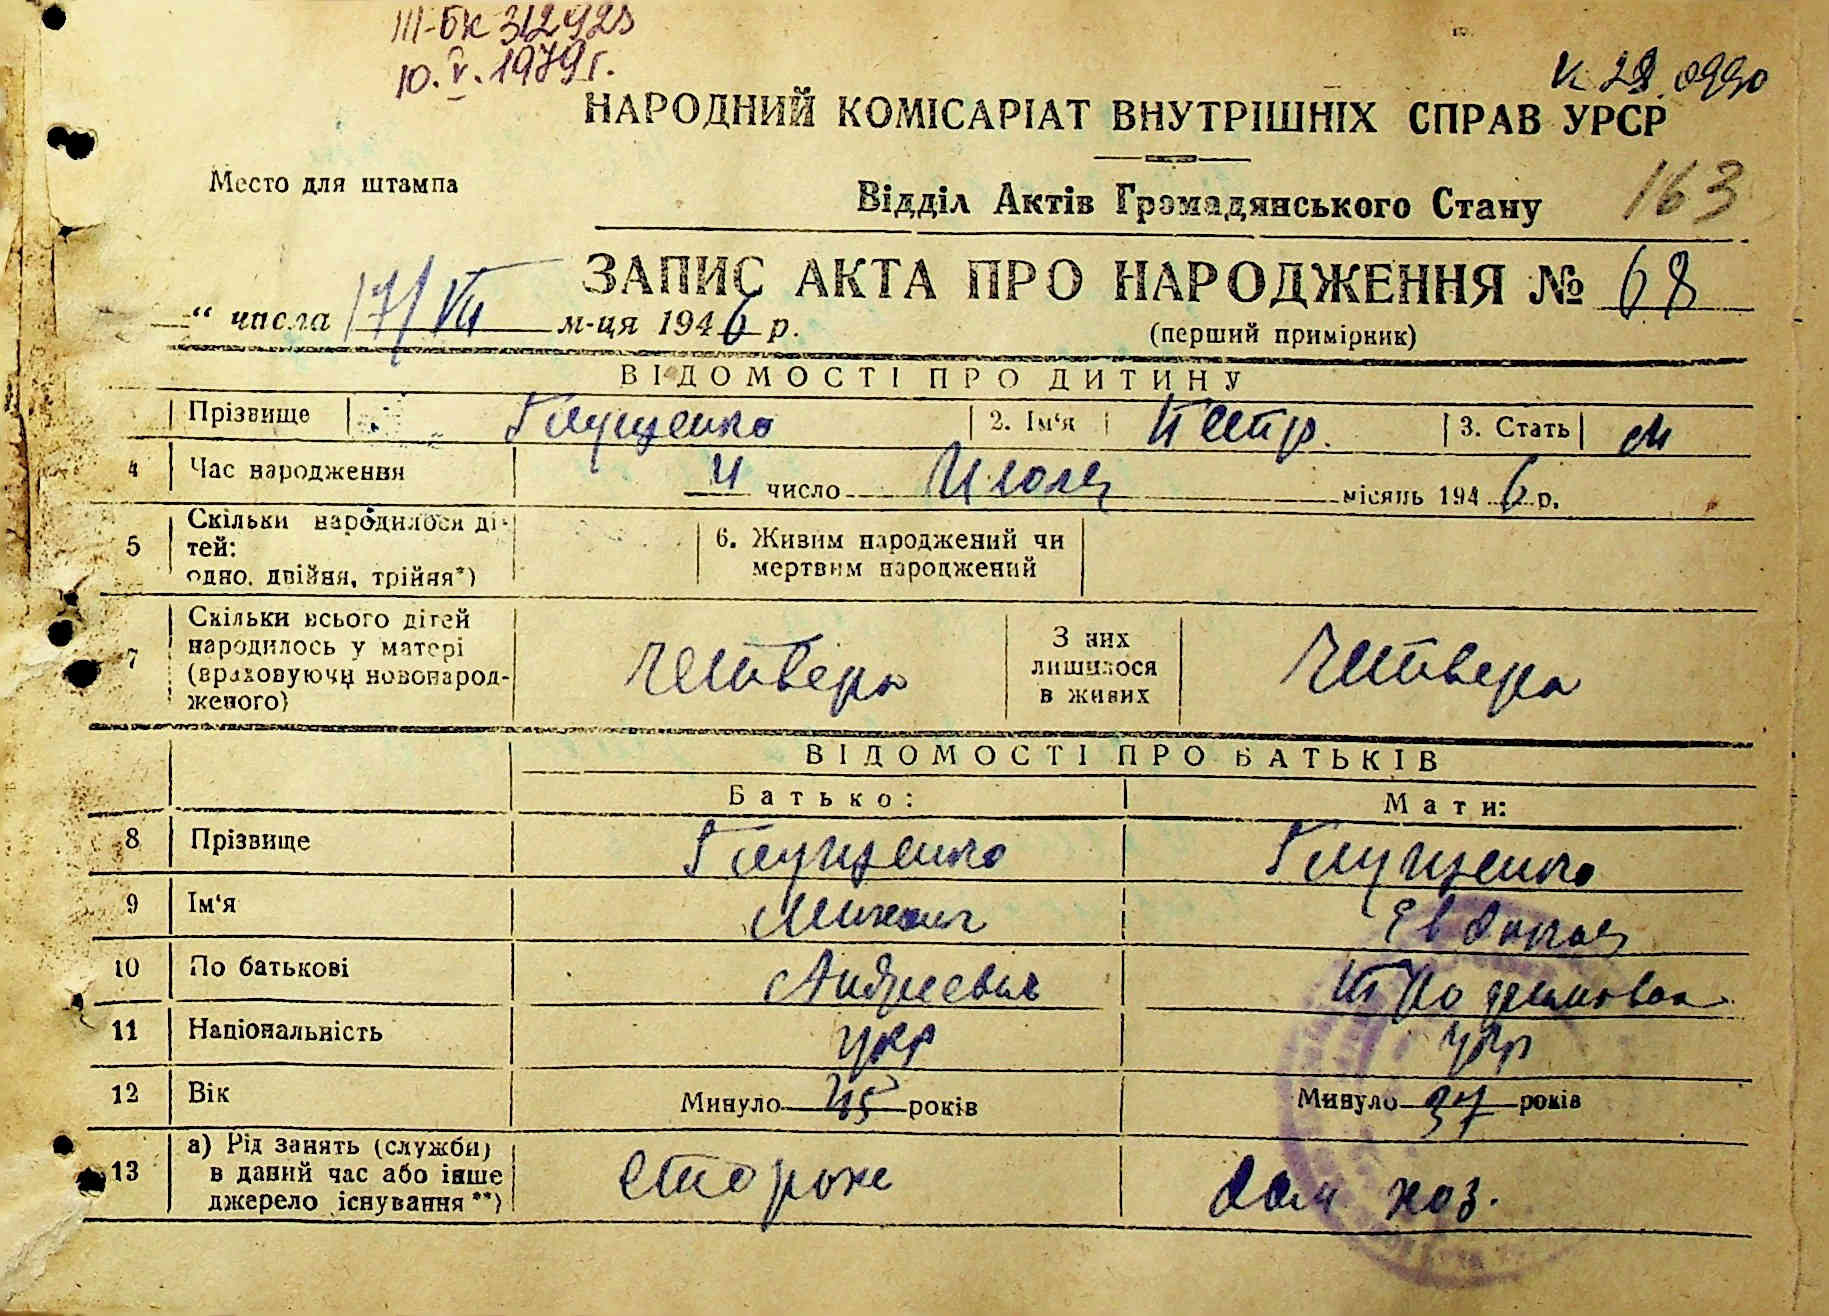 III-БК 312925
10.V.1979г.
НАРОДНИЙ КОМІСАРІАТ ВНУТРІШНІХ СПРАВ УРСР
Место для штампа
Відділ Актів Громадянського Стану 163
ЗАПИС АКТА ПРО НАРОДЖЕННЯ № 68
“ числа 17/VII м-ця 1946 р.
(перший примірник)
ВІДОМОСТІ ПРО ДИТИНУ
Прізвище Глущенко 2. Ім‘я Петр. 3. Стать М
4 Час народження 4 число Июля місяць 1946 р.
5 Скільки народилося ді-
тей:
одно, двійня, трійня*)
6. Живим народжений чи
мертвим народжений
7 Скільки всього дітей
народилось у матері
(враховуючи новонарод-
женого)
четверо
З них
лишилося
в живих
четверо
ВІДОМОСТІ ПРО БАТЬКІВ
Батько: Мати:
8 Прізвище Глущенко Глущенко
9 Ім‘я Михаил Евдокия
10 По батькові Андреевич
11 Національність укр укр
12 Вік Минуло 45 років Минуло 37 років
13 а) Рід занять (служби)
в даний час або інше
джерело існування **)
сторож дом хоз.